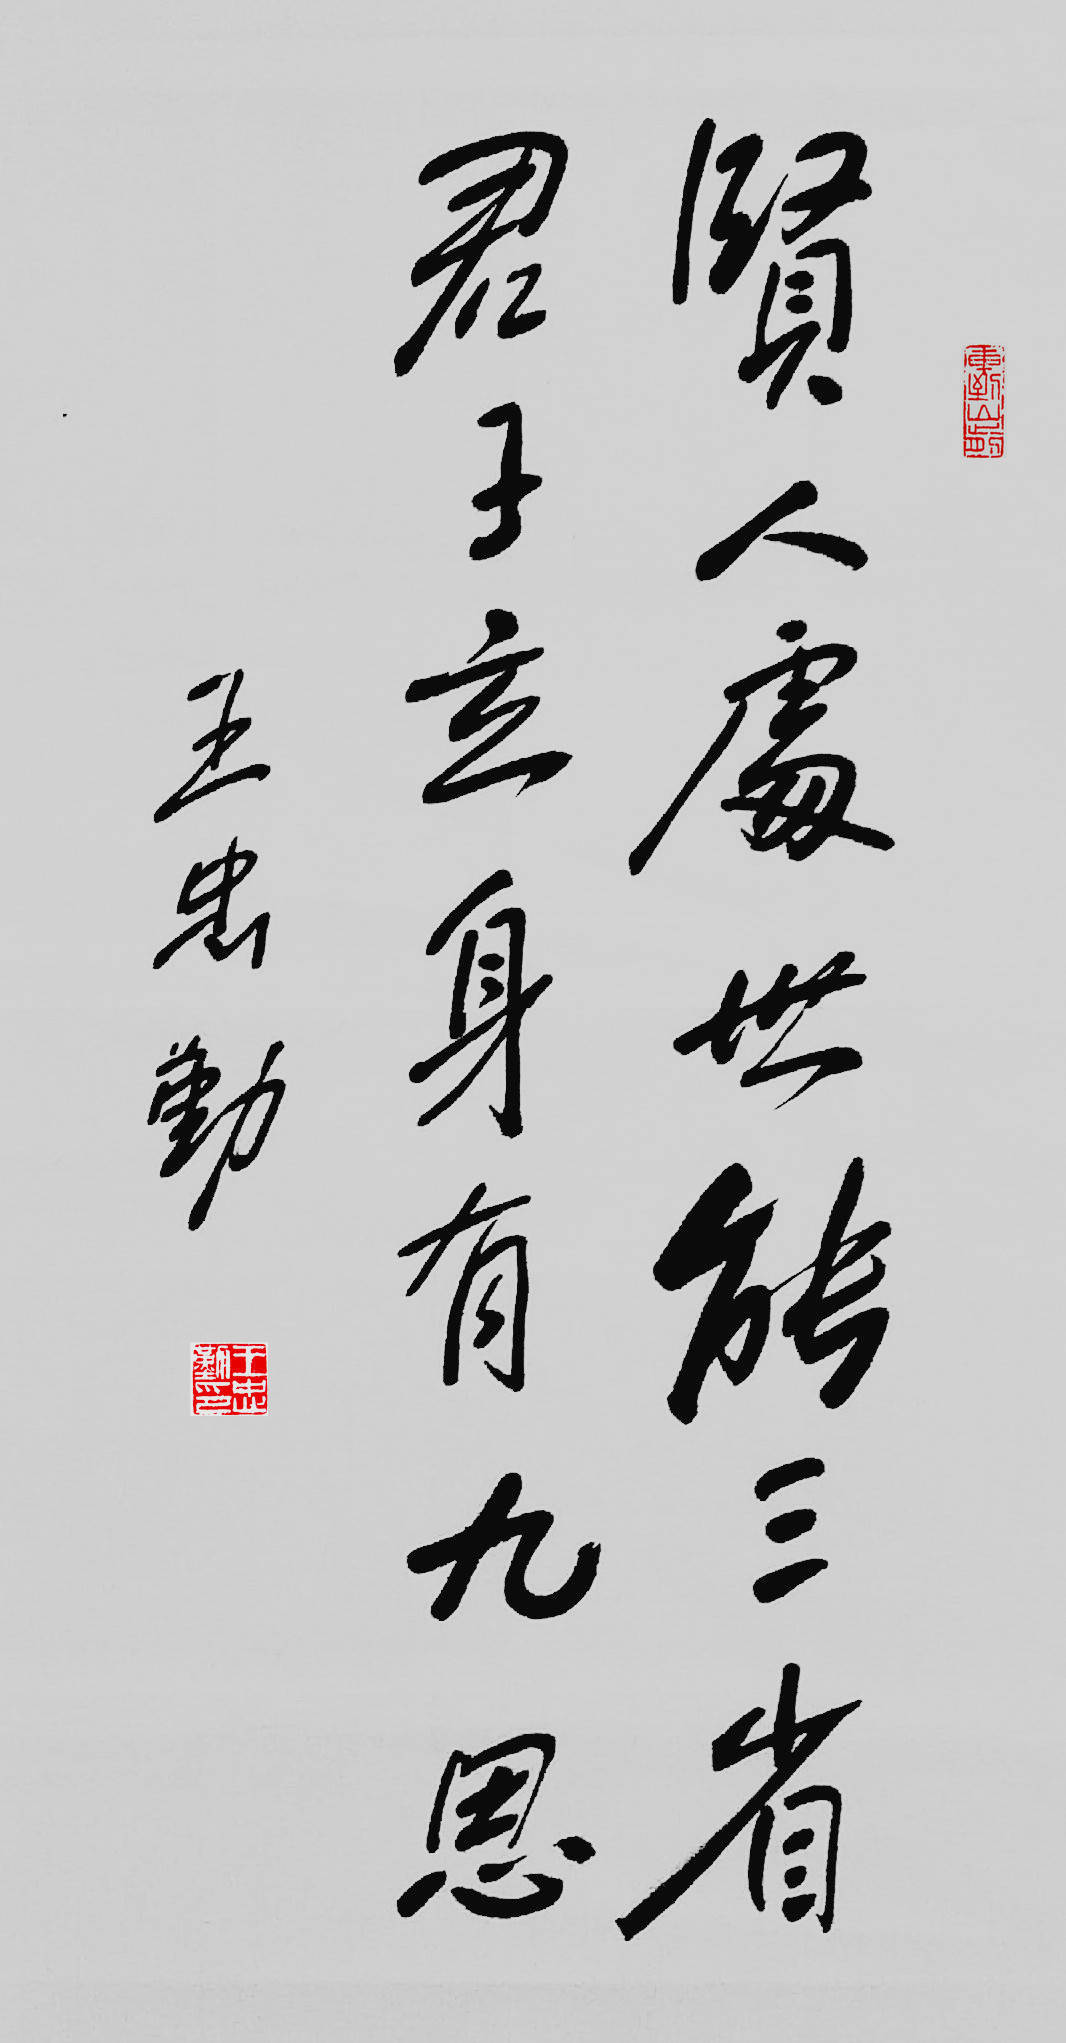 賢人處世能三省
君子立身有九思
王忠勤
王忠勤印